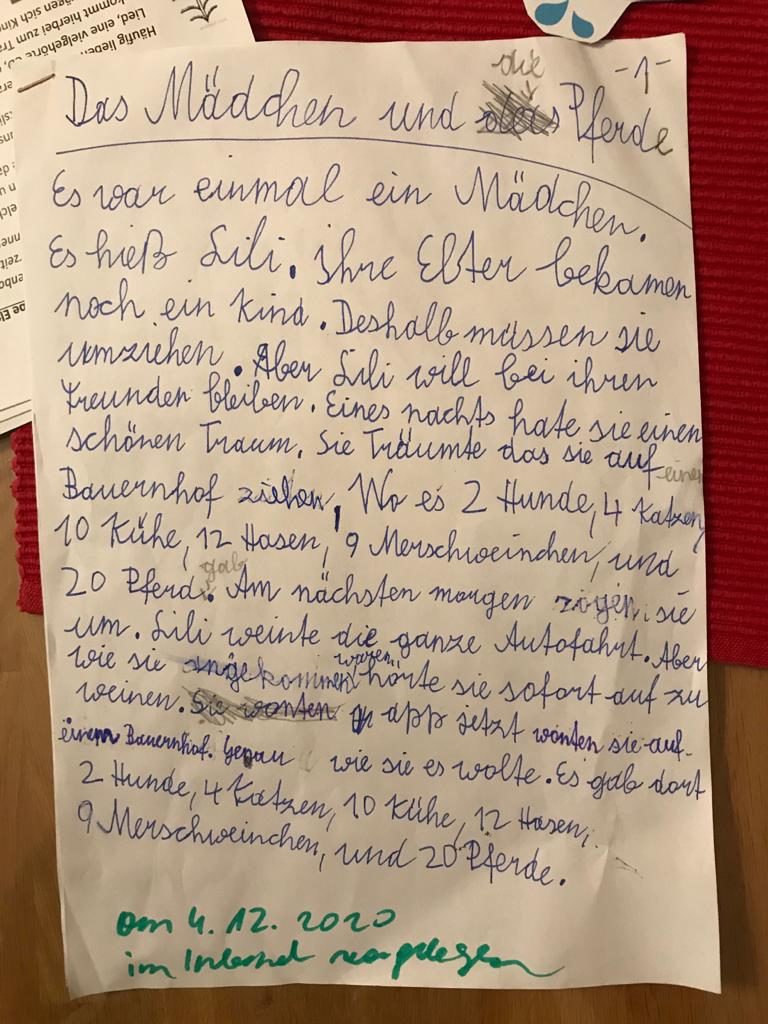 die
-1-
Das Mädchen und Pferde
Es war einmal ein Mädchen.
Es hieß Lili. ihre Elter bekamen
noch ein Kind. Deshalb müssen sie
umziehen. Aber Lili will bei ihren
Freunden bleiben. Eines nachts hate sie einen
schönen Traum. Sie Träumte das sie auf einen
Bauernhof ziehen, Wo es 2 Hunde, 4 Katzen,
10 Kühe, 12 Hasen, 9 Merschweinchen, und
20 Pferd. gab Am nächsten morgen zogen sie
um. Lili weinte die ganze Autofahrt. Aber
wie sie angekommen waren, hörte sie sofort auf zu
weinen. Sie wonten app jetzt wonten sie auf
einem Bauernhof. Genau wie sie es wolte. Es gab dort
2 Hunde, 4 Katzen, 10 Kühe, 12 Hasen,
9 Merschweinchen, und 20 Pferde.
am 4.12.2020
im Internet
Häufig lieben
Lied, eine vielgehörte
kommt hierbei zum